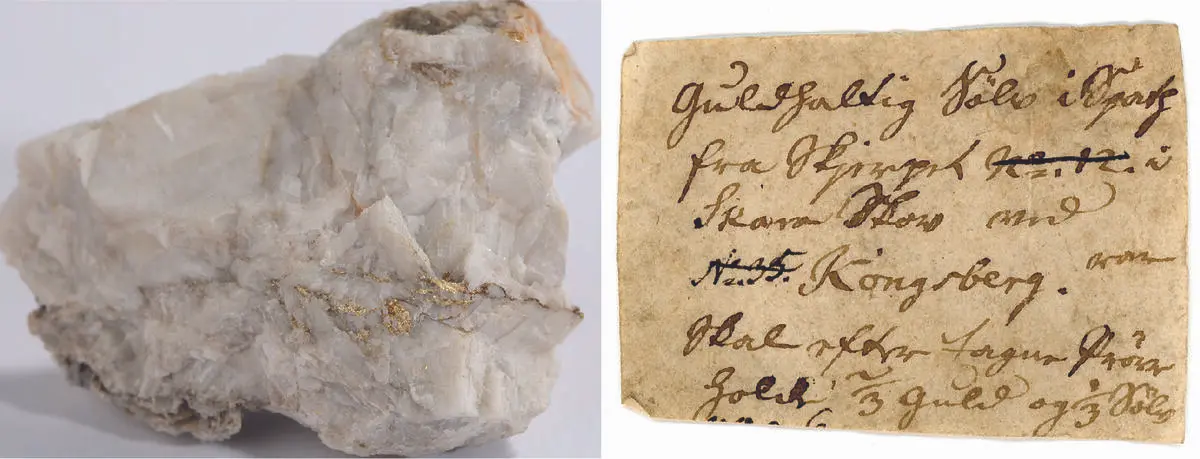 Guldhaltig Sölv i Spath
fra Skjerpet No. 12. i
Skara Skov ved
No. 35. Kongsberg. rar
Skal efter tagne Pröve
holde 2/3 Guld og 1/3 Sölv